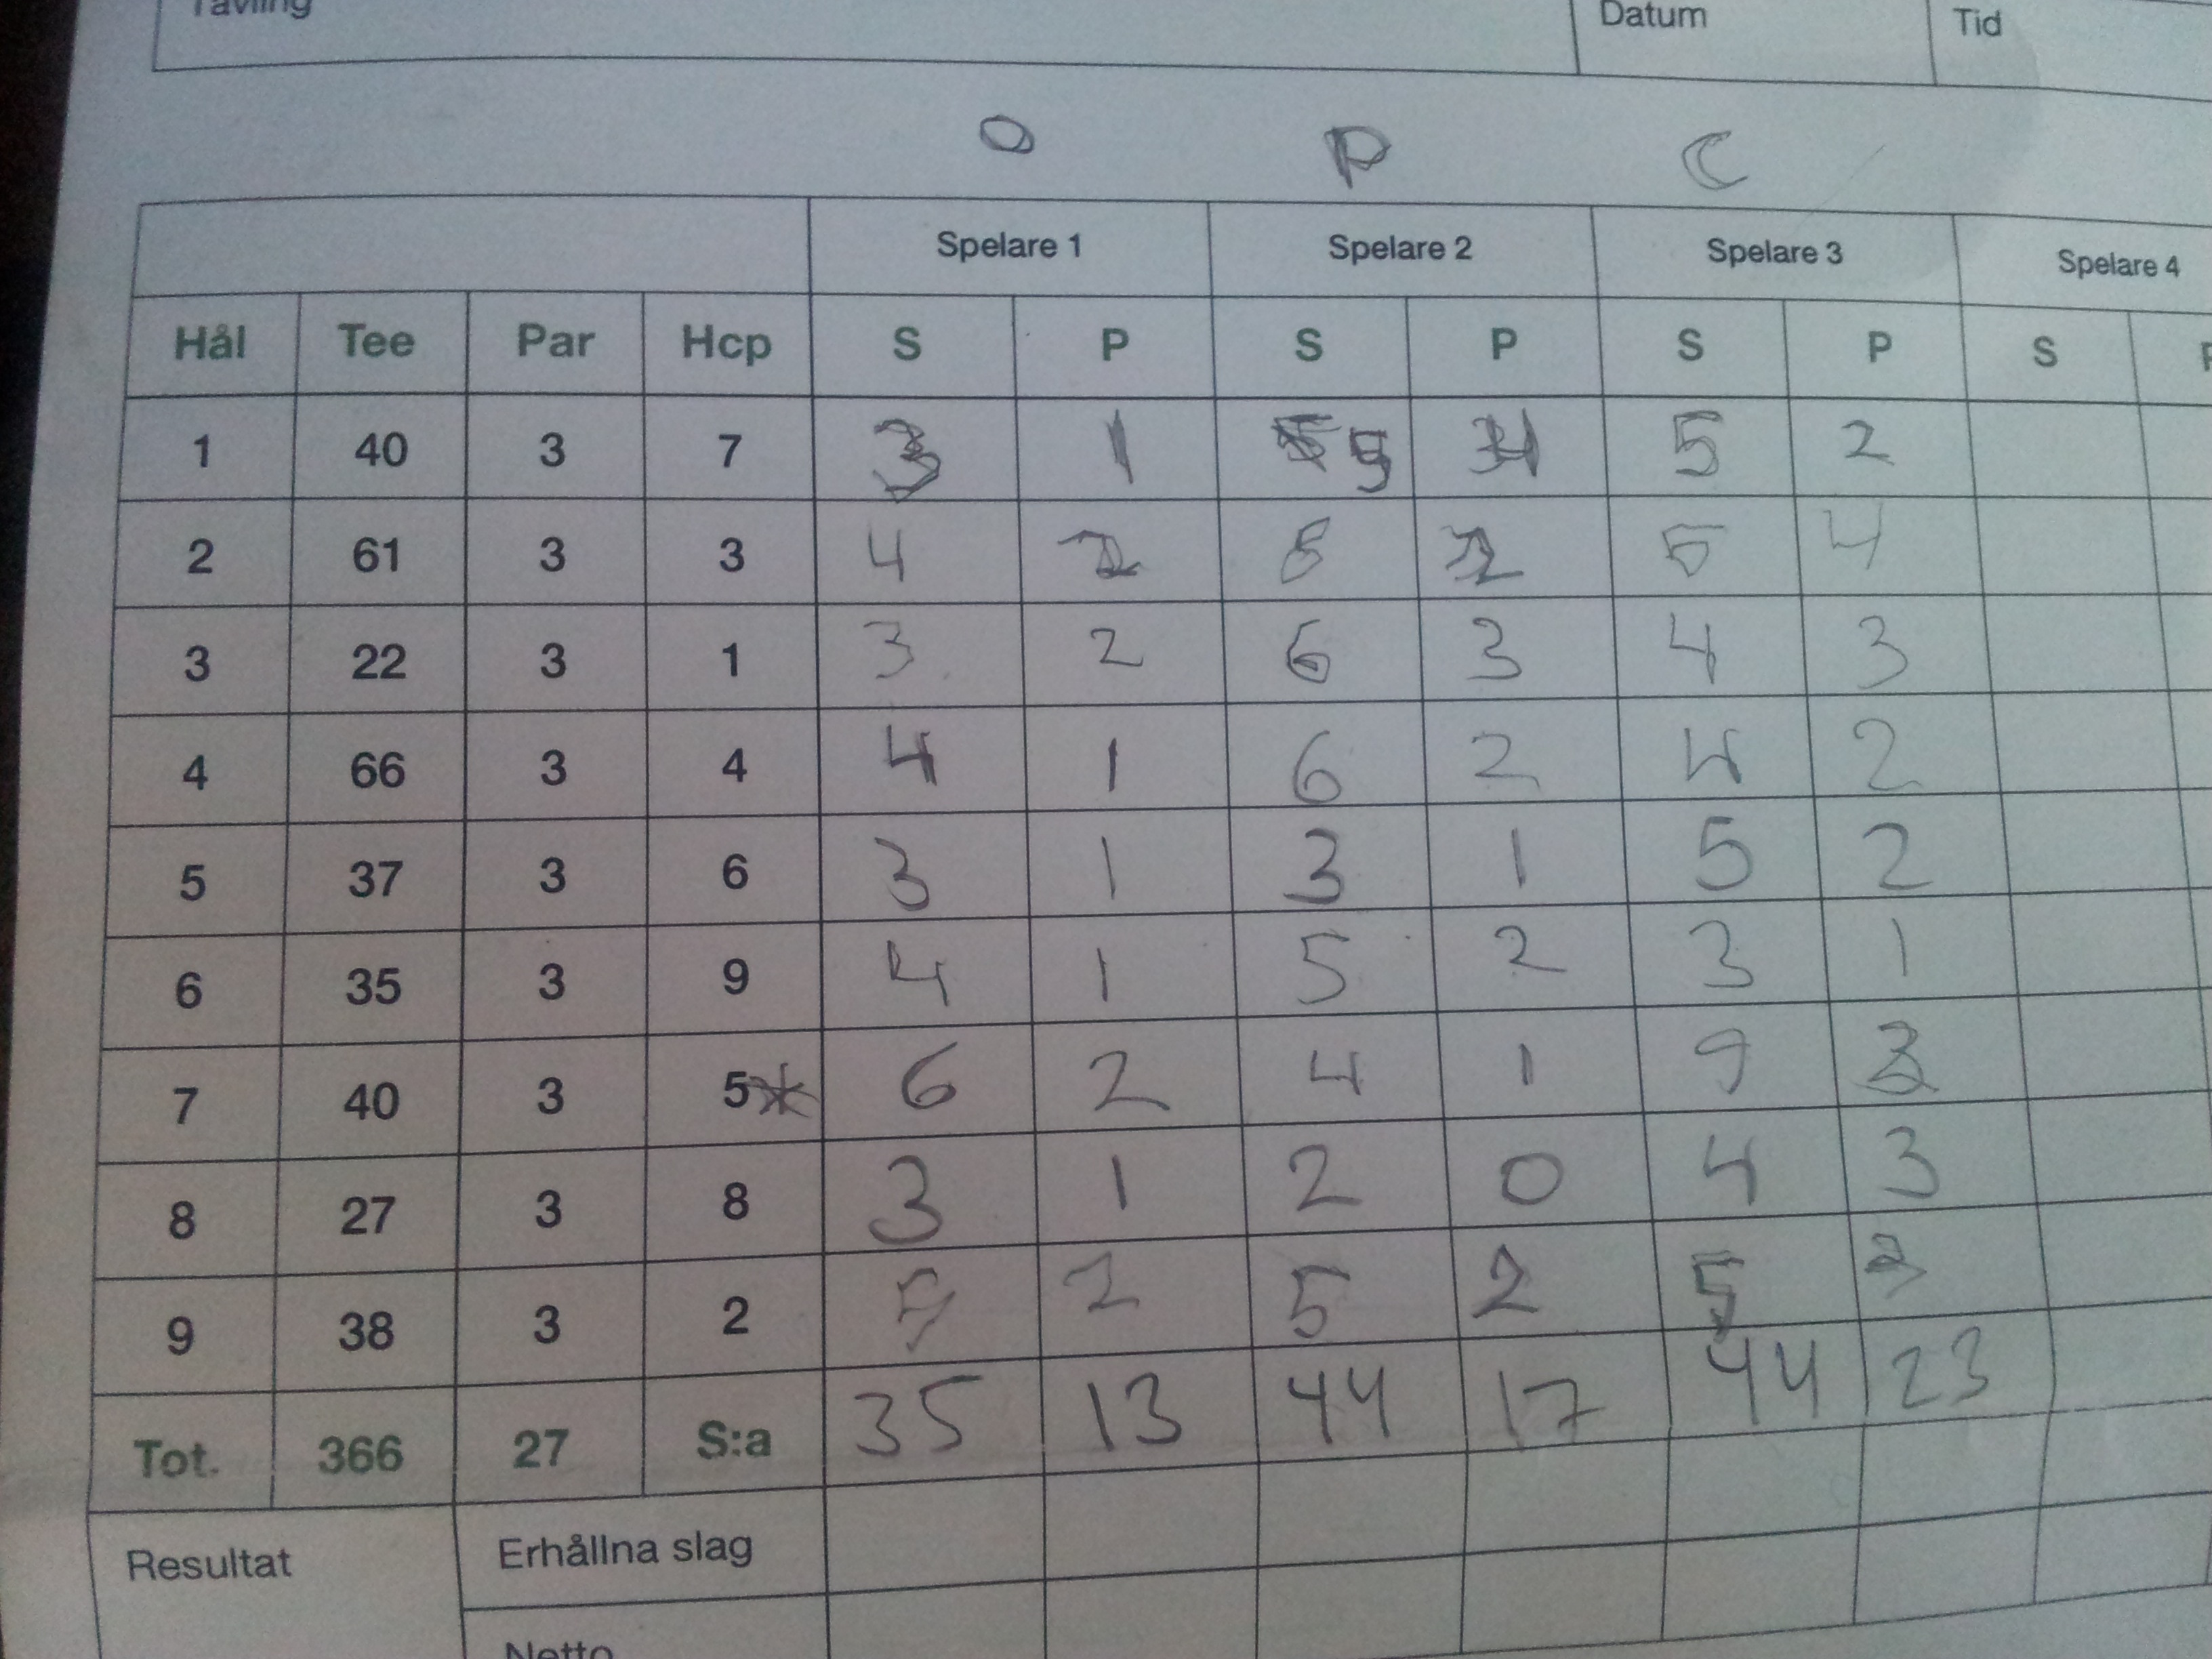 Tävling Datum Tid
O P C
Spelare 1 Spelare 2 Spelare 3 Spelare 4
Hål Tee Par Hcp S P S P S P S
1 40 3 7 3 1 5 5 2
2 61 3 3 4 2 8 2 5 4
3 22 3 1 3 2 6 3 4 3
4 66 3 4 4 1 6 2 4 2
5 37 3 6 3 1 3 1 5 2
6 35 3 9 4 1 5 2 3 1
7 40 3 5* 6 2 4 1 9
8 27 3 8 3 1 2 0 4 3
9 38 3 2 5 2 5 2 5
Tot. 366 27 S:a 35 13 44 17 44 23
Resultat Erhållna slag
Netto